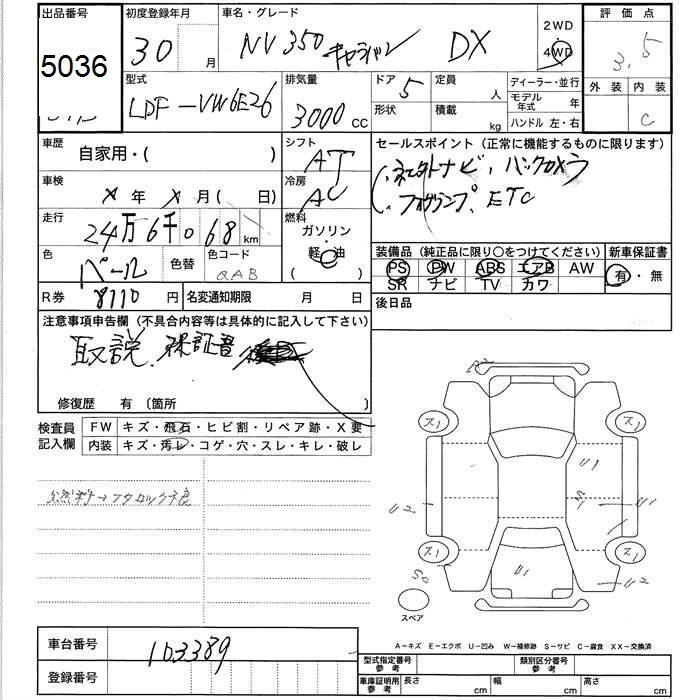 出品番号 初度登録年月 車名・グレード 2WD 評価点
5036 30 月 NV350 キャラバン DX 4WD 3.5
型式 排気量 ドア 定員 ディーラー・並行 外装 内装
LDF-VW6E26 3000cc 5 人 モデル年式 年 C
形状 積載 kg ハンドル 左・右
車歴 シフト セールスポイント(正常に機能するものに限ります)
自家用・( ) AT ・ネエトナビ、バックカメラ
車検 冷房 ・フォグランプ、ETC
X年X月( 日) AC
走行 燃料
24万6千068km ガソリン・軽油
( )
色 色替 色コード 装備品(純正品に限り○をつけてください) 新車保証書
パール QAB PS PW ABS エアB AW 有・無
R券 8110円 名変通知期限 月 日 SR ナビ TV カワ
後日品
注意事項申告欄(不具合内容等は具体的に記入して下さい)
取説、保証書
修復歴 有〔箇所 〕
検査員 FW キズ・飛石・ヒビ割・リペア跡・X要
記入欄 内装 キズ・汚レ・コゲ・穴・スレ・キレ・破レ
ス1 ス1
U1
U2 S1 U1
ス1 ス1
S0 U1 U2
スペア
A-キズ E-エクボ U-凹み W-補修跡 S-サビ C-腐食 XX-交換済
車台番号 103389
登録番号
型式指定番号 参考 類別区分番号 参考
車庫証明用 参考 長さ cm 幅 cm 高さ cm